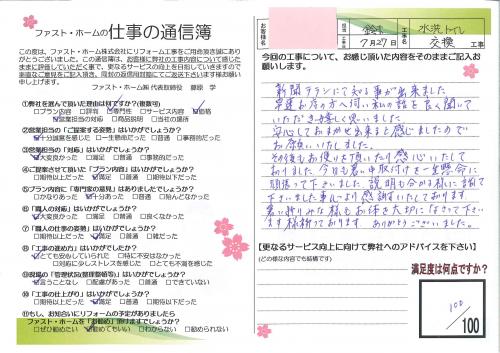 ファスト・ホームの仕事の通信簿
この度は、ファスト・ホーム株式会社にリフォーム工事をご用命頂き誠に
ありがとうございました。この通信簿は、お客様に弊社の工事内容について感じた
ままに評価していただく事で、更なるサービスの向上を目指していきますので
率直なご意見をご記入頂き、同封の返信用封筒にてご返送下さいます様お願い
申し上げます。
ファスト・ホーム㈱ 代表取締役 藤原 学
①弊社を選んで頂いた理由は何ですか?(複数可)
□プラン内容 □評判 □専門性 □サービス内容 □価格
□営業担当の対応 □商品説明 □当社の場所
②営業担当の「ご提案する姿勢」はいかがでしょうか?
□十分誠意を感じた □一生懸命だった □普通 □事務的だった
③営業担当の「対応」はいかがでしょうか?
□大変良かった □満足 □普通 □事務的だった
④ご提案させて頂いた「プラン内容」はいかがでしょうか?
□期待以上だった □満足 □普通 □期待以下だった
⑤プラン内容に「専門家の意見」はありましたでしょうか?
□かなりあった □十分あった □普通 □殆んどなかった
⑥「職人の対応」はいかがでしょうか?
□大変良かった □満足 □普通 □良くなかった
⑦「職人の仕事の姿勢」はいかがでしょうか?
□期待以上だった □満足 □普通 □雑だった
⑧「工事の進め方」はいかがでしたか?
□とても安心していられた □特に不安はなかった
□対応に少しストレスを感じた □とても不満を感じた
⑨現場の「管理状況(整理整頓等)」はいかがでしょうか?
□言うことなし □配慮があった □普通 □できていない
⑩「工事の仕上がり」はいかがでしょうか?
□期待以上だった □満足 □普通 □期待以下だった
⑪もし、お知合いにリフォームの予定がありましたら
ファスト・ホームを「お勧め」頂けますでしょうか?
□ぜひ勧めたい □勧めてもいい □わからない □勧められない
お客様名
担当
鈴木
工事
7月27日
工事名
水洗トイレ
交換
工事
今回の工事について、お感じ頂いた内容をそのままご記入お
願いします。
新聞チラシにて知る事が出来ました
早速お店の方へ伺い私の話を良く聞いて
いただき嬉しく思いました
安心しておまかせ出来ると感じましたので
お願いいたしました。
その後もお便りを頂いたり感心いたして
おりました 今日も暑い中取付けを一生懸命に
頑張って下さいました 説明も分かる様に話して
下さいました事 心より感謝致しております
暑い折り皆様もお体を大切になさって下さい
ます様願っております ありがとうございました。
【更なるサービス向上に向けて弊社へのアドバイスを下さい】
(どの様な内容でも結構です)
満足度は何点ですか?
100
/100